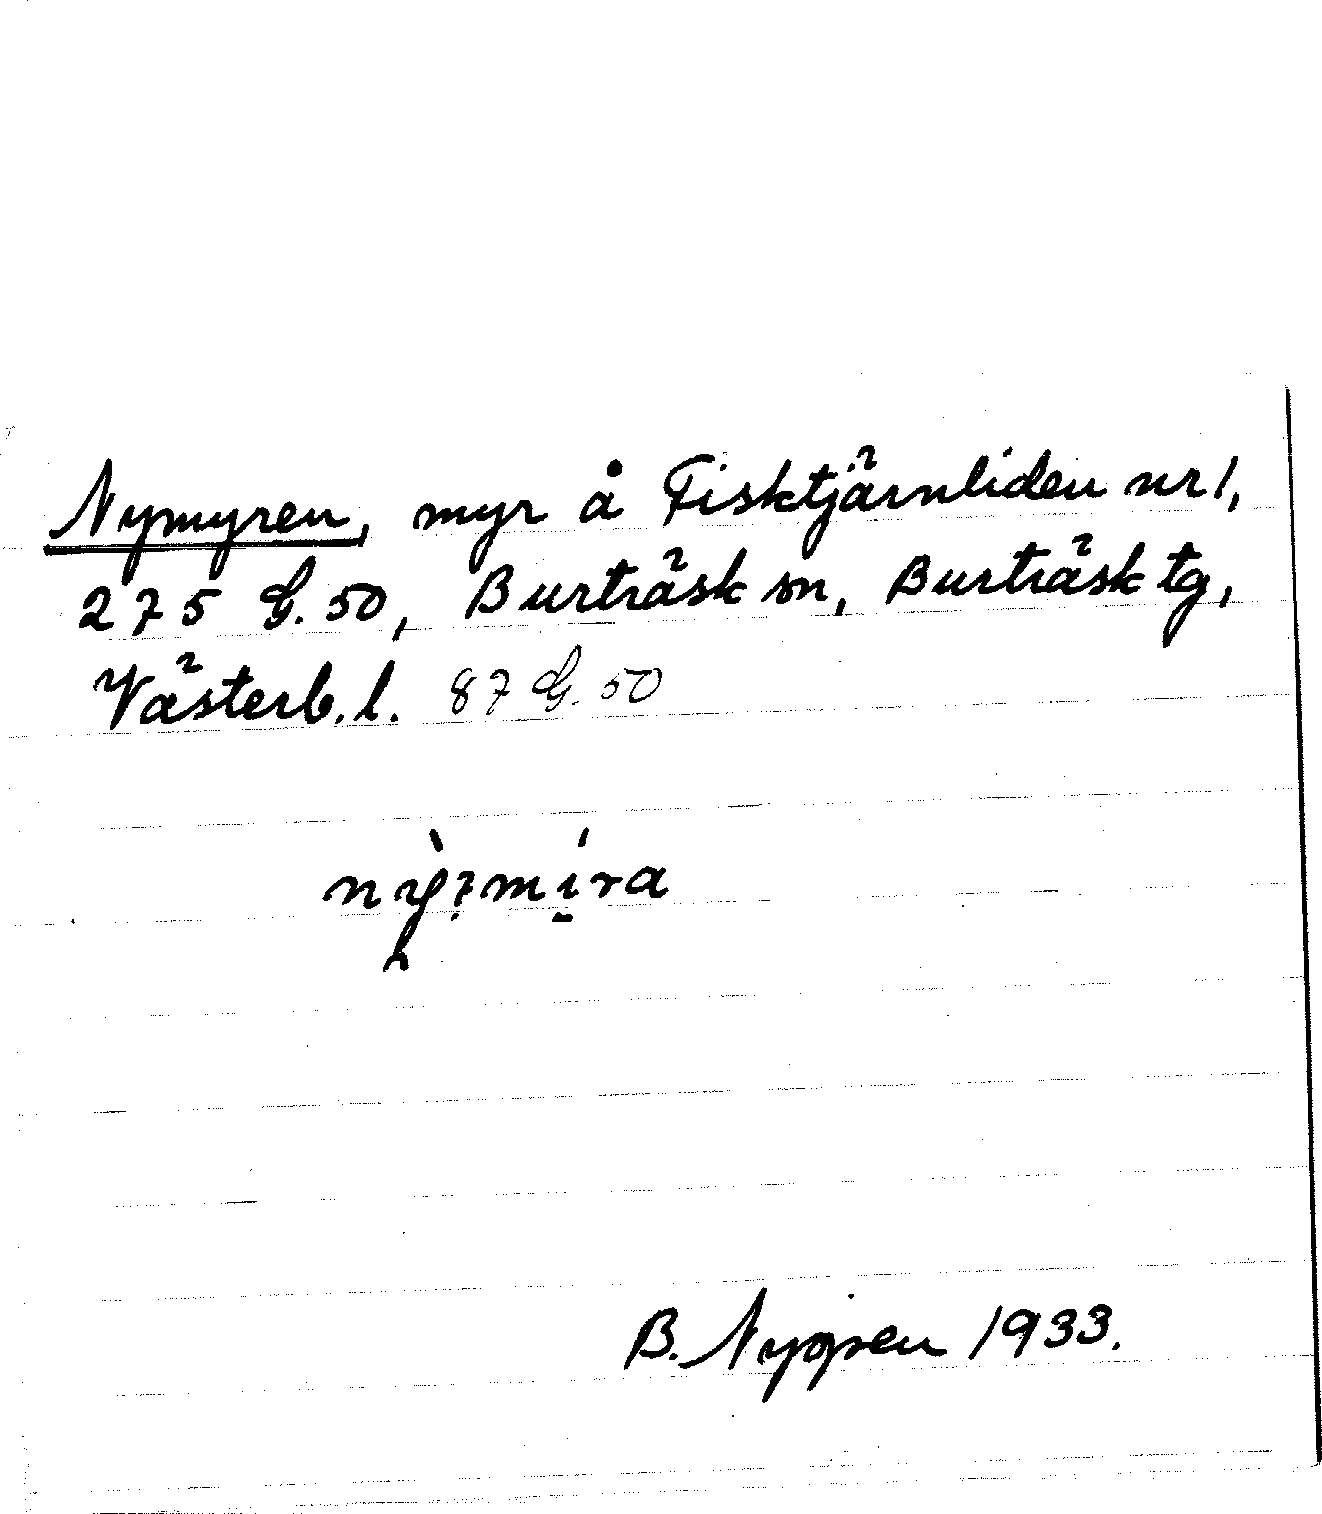 Nymyren, myr å Fisktjärnliden nr 1,
275 G. 50, Burträsk sn, Burträsk tg,
Västerb. l. 87 G. 50
B. Nygren 1933.